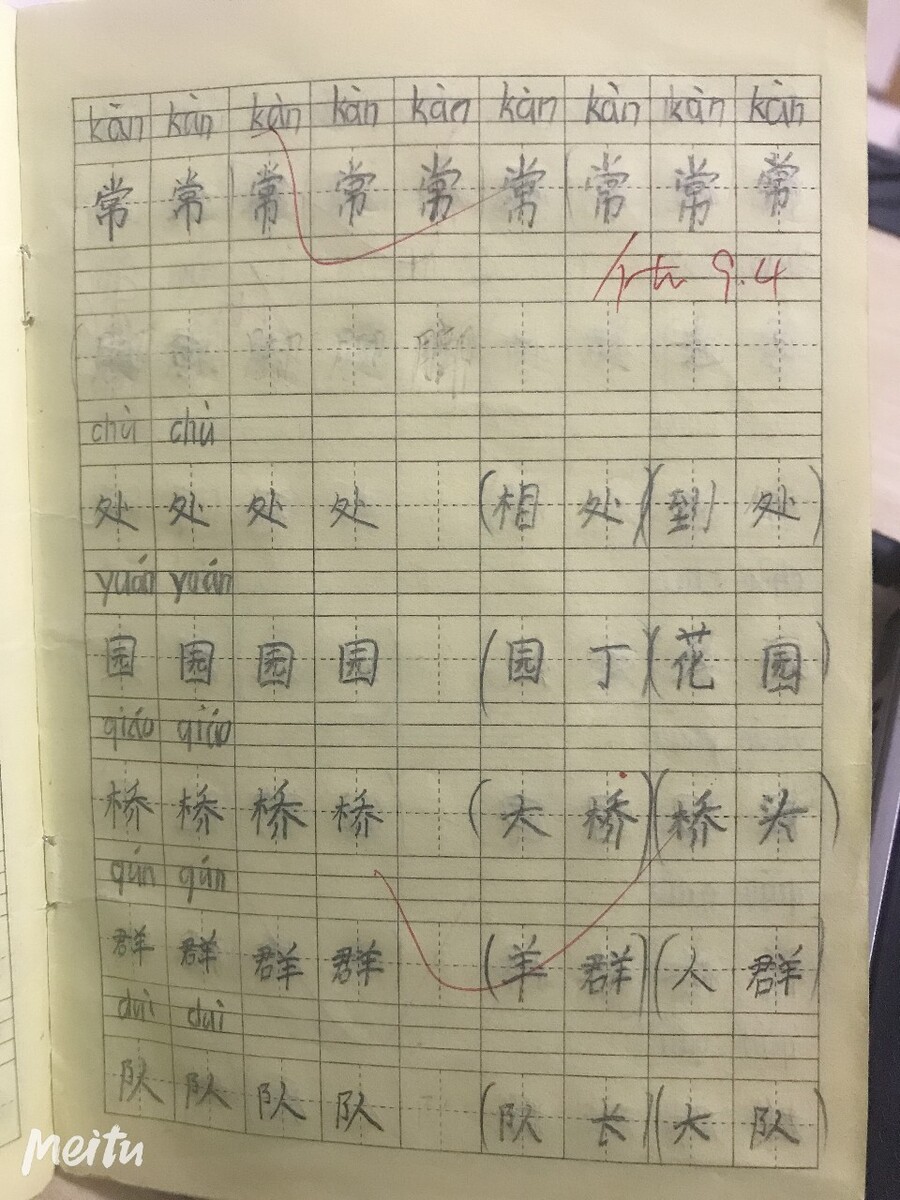 kàn kàn kàn kàn kàn kàn kàn kàn kàn
常 常 常 常 常 常 常 常 常
9.4
chù chù
处 处 处 处 (相 处)(到 处)
yuán yuán
园 园 园 园 (园 丁)(花 园)
qiáo qiáo
桥 桥 桥 桥 (大 桥)(桥 头)
qún qún
群 群 群 群 (羊 群)(人 群)
duì duì
队 队 队 队 (队 长)(大 队)
Meitu